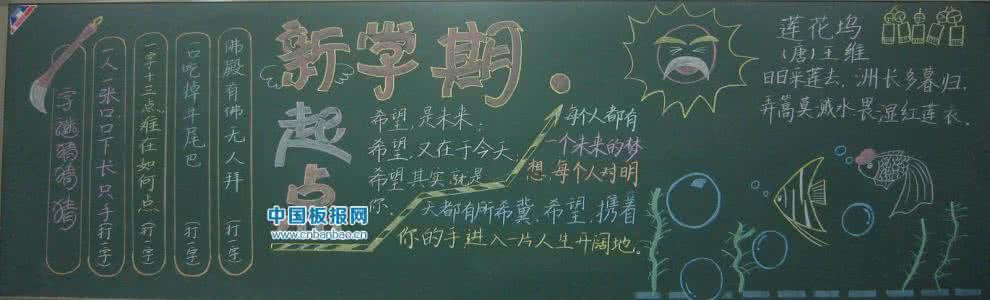 字谜猜猜猜
一人一张口口下长只手(打一字)
一字十三点难在如何点(打一字)
一口吃掉牛尾巴(打一字)
佛殿有佛无人拜(打一字)
新学期
起点
希望,是未来;
希望,又在于今天,
希望其实就是
你.
每个人都有
一个未来的梦
想,每个人对明
天都有所希冀、希望,携着
你的手进入一片人生开阔地。
中国板报网
www.cnbanbao.cn
莲花坞
(唐)王维
日日采莲去,洲长多暮归.
弄篙莫溅水,畏湿红莲衣.